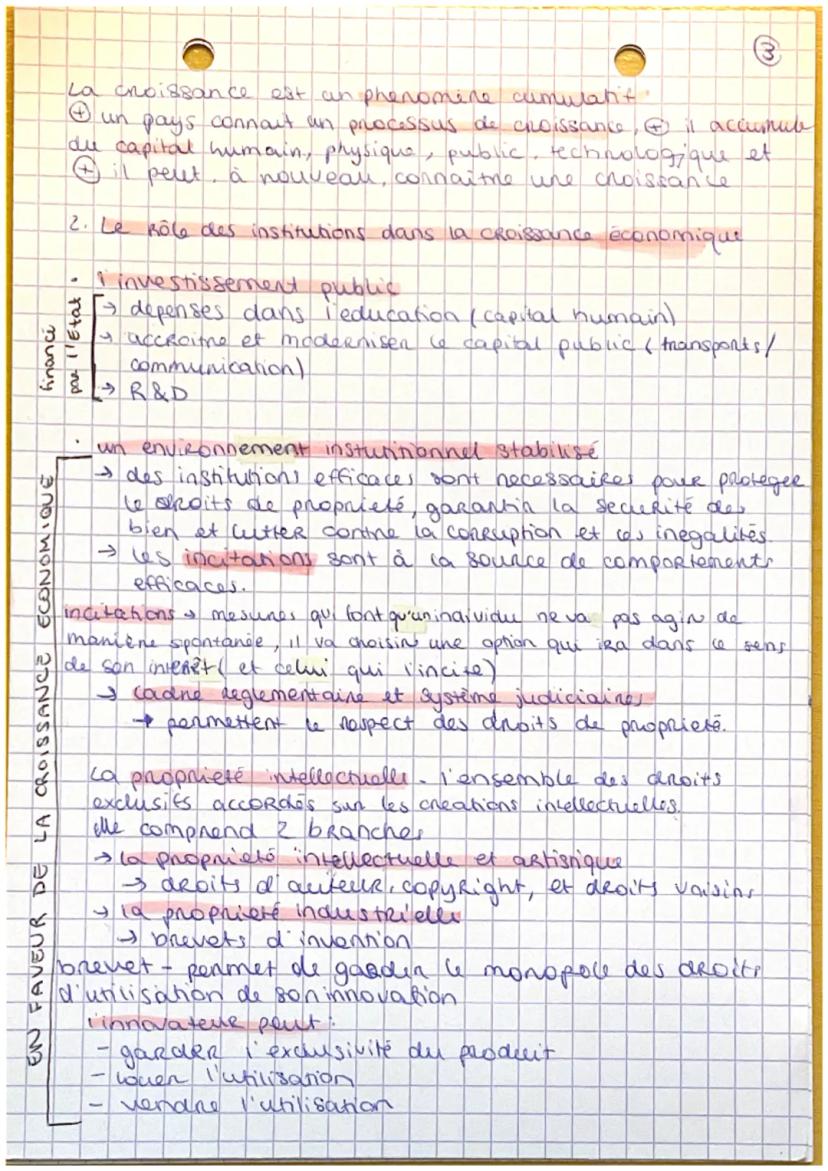 3
La croissance est un phenomène cumulatif
⊕ un pays connait un processus de croissance, ⊕ il accumule
du capital humain, physique, public, technologique et
⊕ il peut, à nouveau, connaître une croissance
2. Le rôle des institutions dans la croissance économique
• l'investissement public
financé par l'Etat
→ depenses dans l'education (capital humain)
→ accroitre et moderniser le capital public (transports/
communication)
→ R&D
EN FAVEUR DE LA CROISSANCE ECONOMIQUE
• un environnement insturionnel stabilisé
→ des institutions efficaces sont necessaires pour proteger
le droits de proprieté, garantir la securité des
bien et lutter contre la corruption et les inegalités.
→ les incitations sont à la source de comportements
efficaces.
incitations → mesures qui font qu'un individu ne va pas agir de
manière spontanée, il va choisir une option qui ira dans le sens
de son interêt (et celui qui l'incite)
→ cadre reglementaire et système judiciaires
→ permettent le respect des droits de proprieté.
La proprieté intellectuelle - l'ensemble des droits
exclusifs accordés sur les creations intellectuelles.
elle comprend 2 branches
→ la proprieté intellectuelle et artisrique
→ droits d'auteur, copyright, et droits voisins
→ la proprieté industrielle
→ brevets d'invention
brevet - permet de garder le monopole des droits
d'utilisation de son innovation
l'innovateur peut :
- garder l'exclusivité du produit
- louer l'utilisation
- vendre l'utilisation